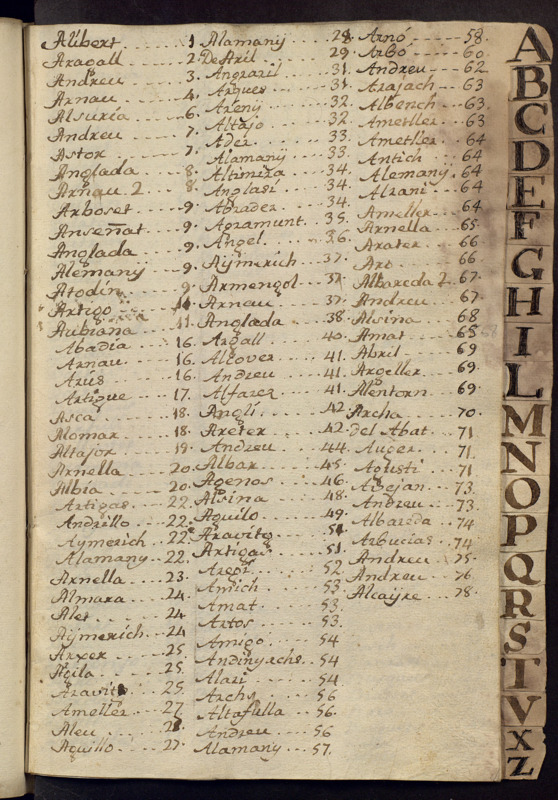 Alibert 1
Aragall 2
Andreu 3
Arnau 4
Alsuria 6
Andreu 7
Astor 7
Anglada 8
Arnau 2 8
Arboset 9
Anseñat 9
Anglada 9
Alemany 9
Atodín 9
Artigo 11
Aubiana 11
Abadia 16
Arnau 16
Arús 16
Artigue 17
Asca 18
Alomar 18
Altajor 19
Arnella 20
Albia 20
Artigas 22
Andrillo 22
Aymerich 22
Alamany 22
Arnella 23
Almara 24
Alet 24
Aÿmerich 24
Arxer 25
Agila 25
Aravito 25
Ameller 27
Aleu
Aguillo 27
Alamanÿ 28
De Aril 29
Angrasil 31
Arques 31
Areny 32
Altajo 32
Ader 33
Alamanÿ 33
Altimira 34
Anglasi 34
Abrader 34
Agramunt 35
Angel 36
Aÿmerich 37
Armengol 37
Arneu 37
Anglada 38
Argall 40
Alcover 41
Andreu 41
Alfarez 41
Anglí 42
Areter 42
Andreu 44
Albar 45
Agenos 46
Alsina 48
Aguilo 49
Aravito 51
Artigas 51
Argoi 52
Amich 53
Amat 53
Artos 53
Amigo 54
Andinyachs 54
Alari 54
Archs 56
Altafulla 56
Andreu 56
Alamany 57
Arnó 58
Arbó 60
Andreu 62
Arajach 63
Albench 63
Ametller 63
Ametller 64
Antich 64
Alemany 64
Alzani 64
Ameller 64
Arnella 65
Arater 66
Aro 66
Albareda 2 67
Andreu 67
Alsina 68
Amat 68
Abril 69
Argeller 69
Alentorn 69
Archa 70
del Abat 71
Auger 71
Agusti 71
Abejan 73
Andreu 73
Albareda 74
Arbucias 74
Andreu 75
Andreu 76
Alcayre 78
A
B
C
D
E
F
G
H
I
L
M
N
O
P
Q
R
S
T
V
X
Z